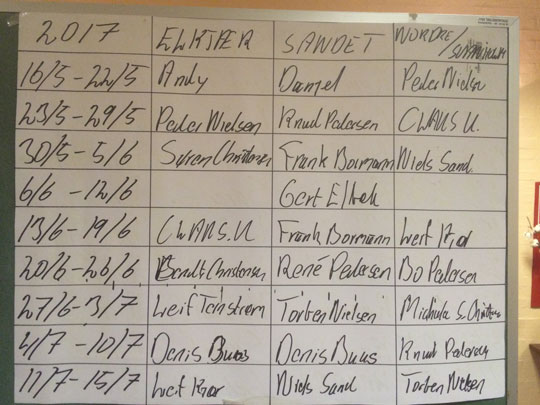 2017 ELKJÆR SANDET NORDRE/
16/5 - 22/5 Andy Daniel Peder Nielsen
23/5 - 29/5 Peder Nielsen Knud Pedersen CLAUS U.
30/5 - 5/6 Søren Christensen Frank Bormann Niels Sand
6/6 - 12/6 Gert Elbek
13/6 - 19/6 CLAUS.U Frank Bormann Leif Kor
20/6 - 26/6 Bendt Christensen René Pedersen Bo Pedersen
27/6 - 3/7 Leif Tornstrøm Torben Nielsen S. Christensen
4/7 - 10/7 Denis Buus Denis Buus Knud Pedersen
11/7 - 15/7 Leif Kor Niels Sand Torben Nielsen